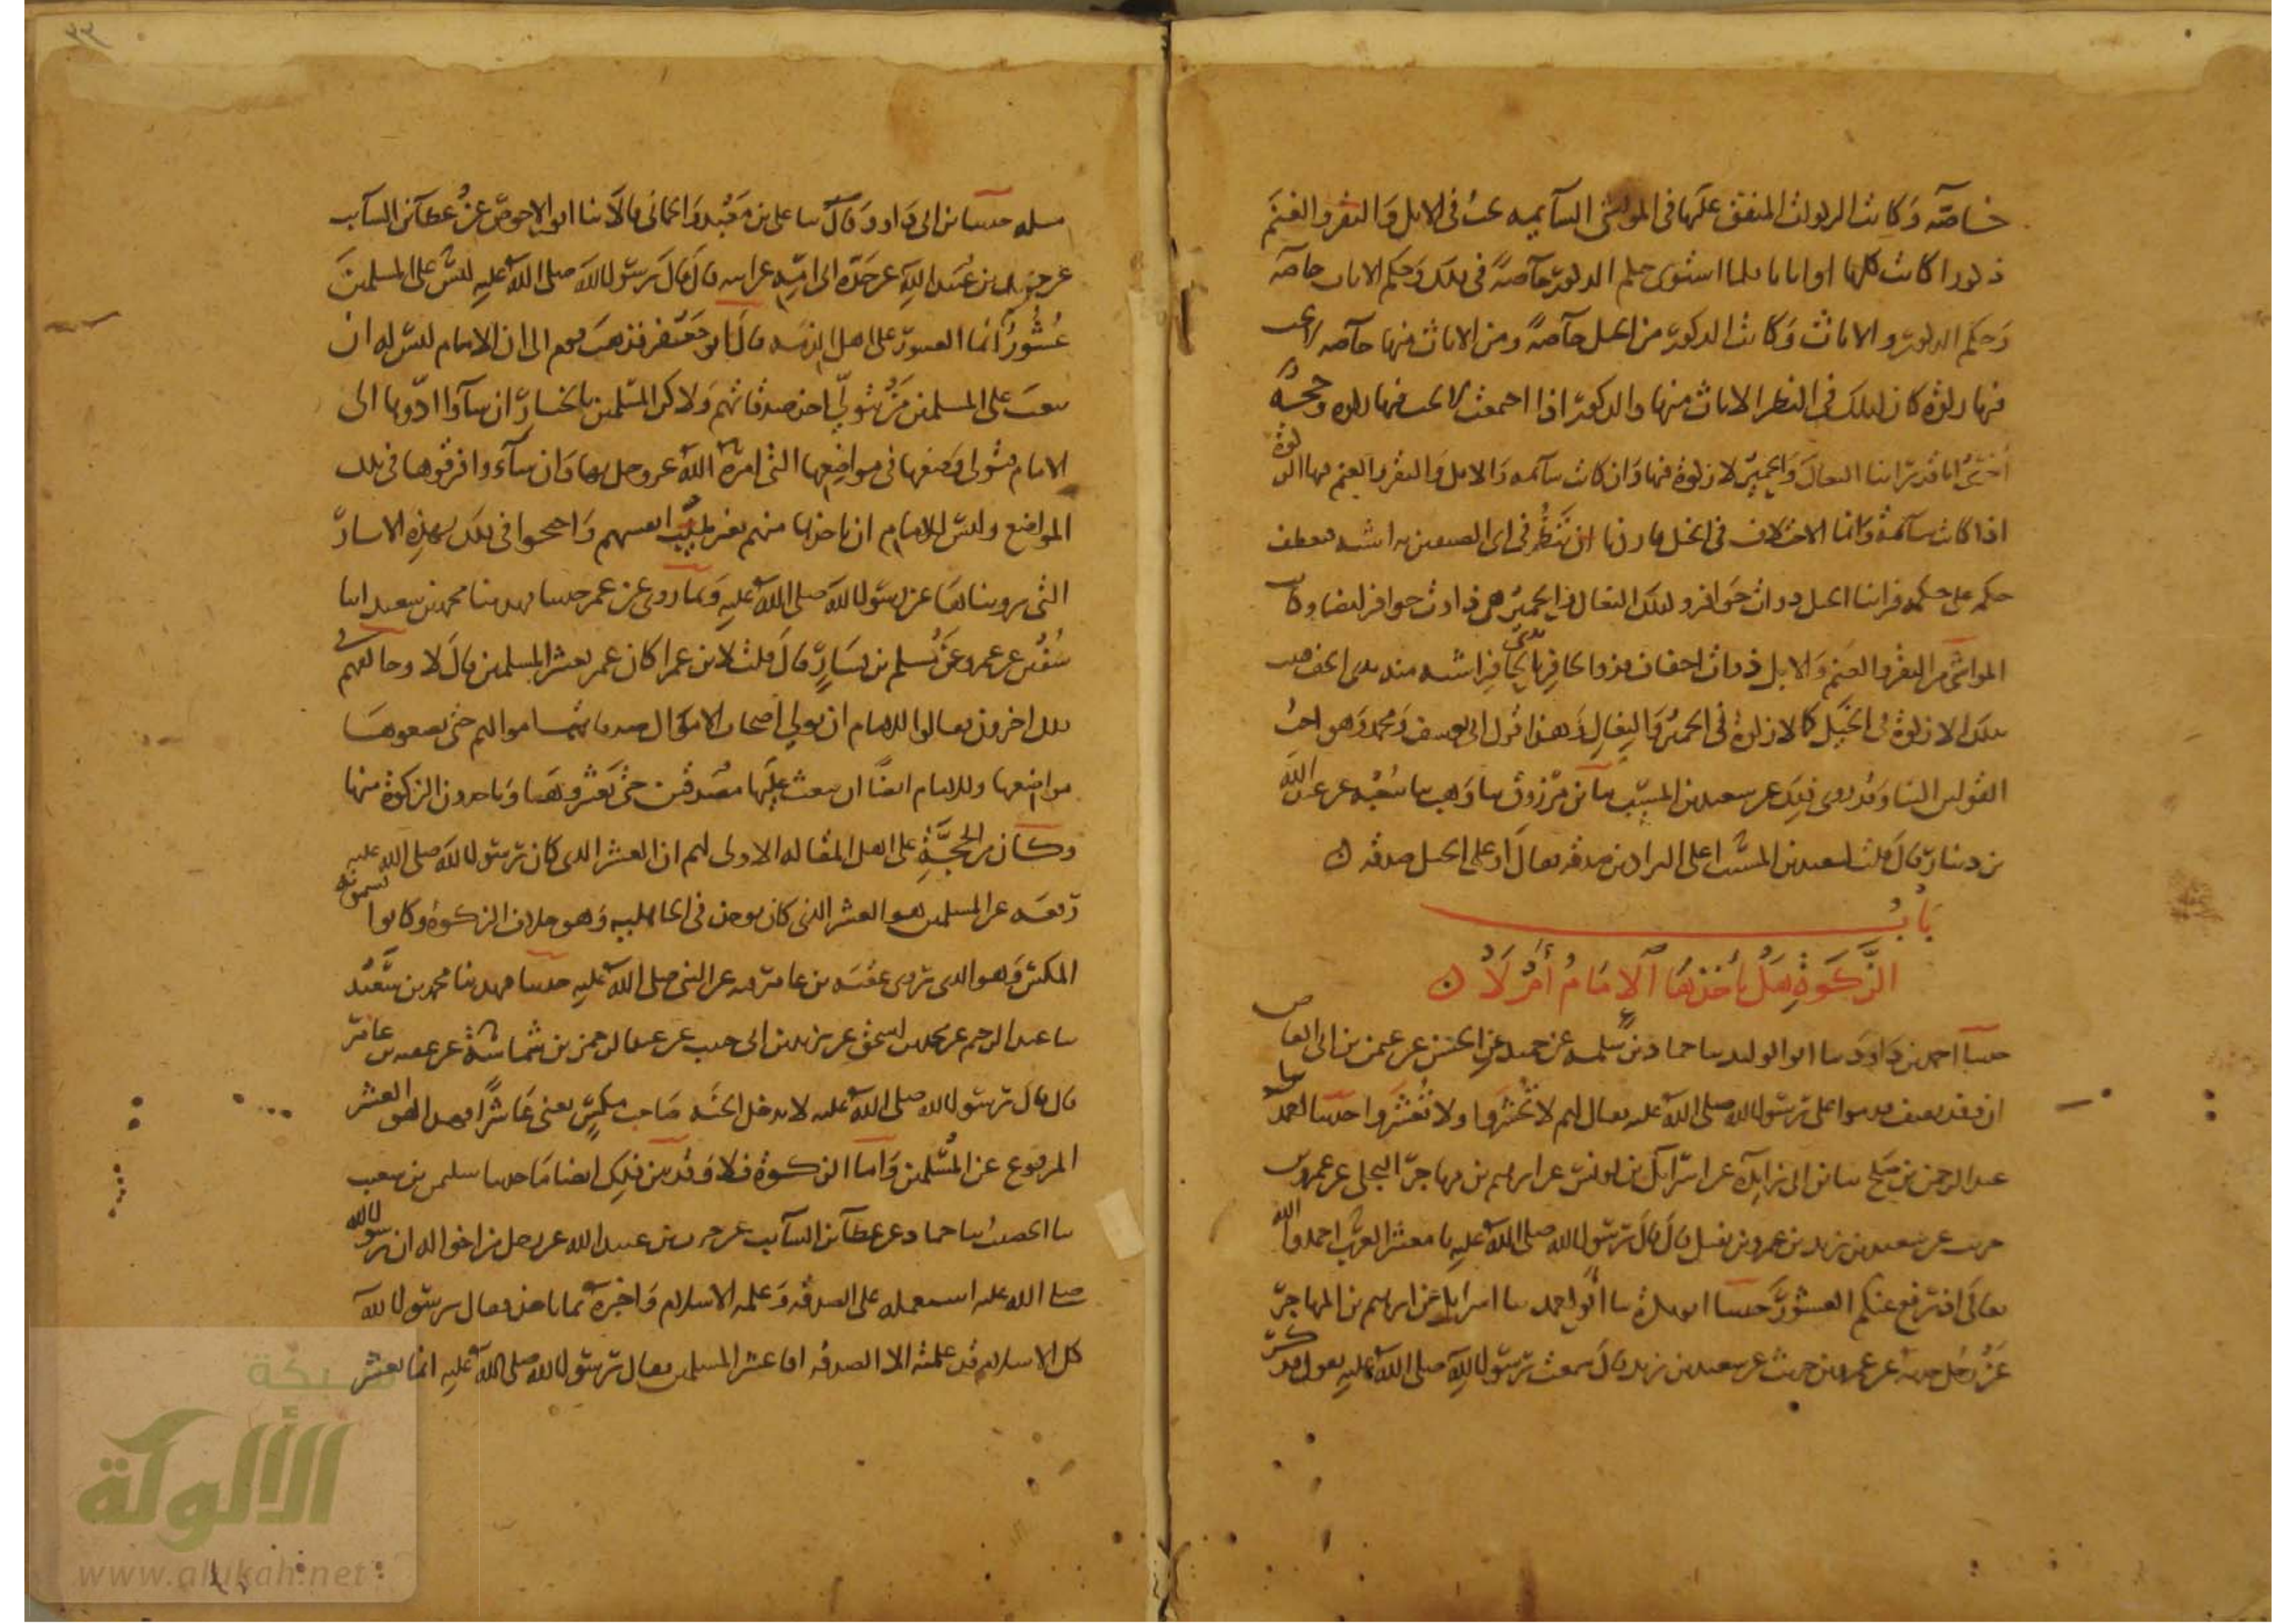 خاصة وكانت الزكوات المتفق عليها في المواشي السآيمه تجب في الابل والبقر والغنم
ذكورا كانت كلها او اناثا فلما استوى حكم الذكور خآصةً في ذلك وحكم الاناث خآصة
وحكم الذكور والاناث وكانت الذكور من الخيل خآصةً ومن الاناث منها خآصه لا تجب
فيها زكوة كان كذلك في النظر الاناث منها والذكور اذا اجتمعت لا تجب فيها زكوة وحجة
اخرى انا قد راينا البغال والحمير لا زكوة فيها وان كانت سآئمه والابل والبقر والغنم فيها الزكوة
اذا كانت سآئمة وانما الاختلاف في الخيل فاردنا ان ننظر في اى الصنفين به اشبه فنعطف
حكمه على حكمه فراينا الخيل ذوات حوافر وكذلك البغال والحمير هي ذوات حوافر ايضا وكانت
المواشي من البقر والغنم والابل ذوات اخفاف فذو الحافر بذي الحافر اشبه منه بذى الخف فثبت
بذلك ان لا زكوة في الخيل كما لا زكوة في الحمير والبغال وهذا قول ابي يوسف ومحمد وهو احب
القولين الينا وقد روى ذلك عن سعيد بن المسيب حدثنا ابن مرزوق ثنا وهب ثنا شعبه عن عبد الله
بن دينار قال قلت لسعيد بن المسيب اعلى البراذين صدقه فقال او على الخيل صدقه ن
باب
الزكوة هل يأخذها الامام أم لا ن
حدثنا احمد بن داود ثنا ابو الوليد ثنا حماد بن سلمه عن حميد عن الحسن عن عثمن بن ابي العاص
ان وفد ثقيف قدموا على رسول الله صلى الله عليه فقال لهم لا تحشروا ولا تعشروا حدثنا
عبد الرحمن بن صالح ثنا ابن ابي زايدة عن اسرآيل بن يونس عن ابرهيم بن مهاجر البجلي عن عمرو بن
حريث عن سعيد بن زيد بن عمرو بن نفيل قال قال رسول الله صلى الله عليه يا معشر العرب احمدوا الله
تعالى اذ رفع عنكم العشور حدثنا ابو بكرة ثنا ابو احمد ثنا اسرايل عن ابرهيم بن المهاجر
عن رجل حدثه عن عمرو بن حريث عن سعيد بن زيد قال سمعت رسول الله صلى الله عليه يقول فذكر
حدثنا ابن ابي داود وقال ثنا علي بن معبد والحماني قالا ثنا ابو الاحوص عن عطآء بن السآيب
عن حرب بن عبيد الله عن جده ابي اميه عن ابيه قال قال رسول الله صلى الله عليه ليس على المسلمين
عشور انما العشور على اهل الذمه قال ابو جعفر فذهب قوم الى ان الامام ليس له ان
يبعث على المسلمين من يتولى اخذ صدقاتهم ولكن المسلمين بالخيار ان شآوا ادوها الى
الامام فتولى وضعها في مواضعها التي امره الله عز وجل بها وان شآءوا فرقوها في تلك
المواضع وليس للامام ان ياخذها منهم بغير طيب انفسهم واحتجوا في ذلك بهذه الاثار
التي رويناها عن رسول الله صلى الله عليه وبما روى عن عمر حدثنا فهد ثنا محمد بن سعيد انا
سفين عن عمرو عن مسلم بن يسار قال قلت لابن عمر اكان عمر يعشر المسلمين قال لا وخالفهم في
ذلك اخرون فقالوا للامام ان يولي اصحاب الاموال صدقات اموالهم حتى يضعوها
مواضعها وللامام ايضا ان يبعث عليها مصدقين حتى يعشروها وياخذون الزكوة منها
وكان من الحجة على اهل المقاله الاولى لهم ان العشر الذى كان رسول الله صلى الله عليه
رفعه عن المسلمين هو العشر الذي كان يوخذ في الجاهليه وهو خلاف الزكوة وكانوا يسمونه
المكس وهو الذى روى عقبه بن عامر فيه عن النبي صلى الله عليه حدثنا فهد ثنا محمد بن سعيد
ثنا عبد الرحيم عن محمد بن اسحق عن يزيد بن ابي حبيب عن عبد الرحمن بن شماسة عن عقبه بن عامر
قال قال رسول الله صلى الله عليه لا يدخل الجنه صاحب مكس يعني عاشرا فهذا هو العشر
المرفوع عن المسلمين واما الزكوة فلا وقد بين ذلك ايضا ما حدثنا سليمن بن شعيب
ثنا الخصيب ثنا حماد عن عطآء بن السآيب عن حرب بن عبيد الله عن رجل من اخواله ان رسول الله
صلى الله عليه استعمله على الصدقه وعلمه الاسلام واخبره بما ياخذ فقال يرسول الله
كل الاسلام قد علمته الا الصدقه افاعشر المسلمين فقال رسول الله صلى الله عليه انما يعشر
شبكة
الألوكة
www.alukah.net